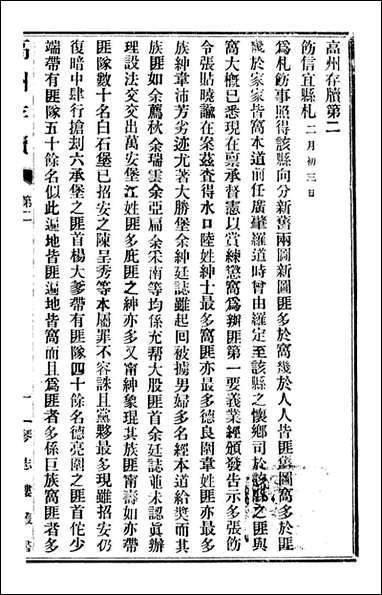 高州存牘第二
飭信宜縣札 二月初三日
爲札飭事照得該縣向分新舊兩圖新圖匪多於窩幾於人人皆匪舊圖窩多於匪
幾於家家皆窩本道前任廣肇羅道時曾由羅定至該縣之懷鄉司於該縣之匪與
窩大槪已悉現在稟承督憲以賞練懲窩爲辦匪第一要義業經頒發告示多張飭
令張貼曉諭在案茲查得水口陸姓紳士最多窩匪亦最多德良圖韋姓匪亦最多
族紳韋沛芳劣迹尤著大勝堡余紳廷誌雖起回被擄男婦多名經本道給奬而其
族匪如余薦秋余瑞雲余亞扁余宋南等均係充帮大股匪首余廷誌並未認眞辦
理設法交交出萬安堡江姓匪多庇匪之紳亦多又甯紳象琨其族匪甯壽如亦帶
匪隊數十名白石堡已招安之陳呈秀等本屬罪不容誅且黨夥最多現雖招安仍
復暗中肆行搶刦六承堡之匪首楊大爹帶有匪隊四十餘名德亮圖之匪首佗少
端帶有匪隊五十餘名似此遍地皆匪遍地皆窩而且爲匪者多係巨族窩匪者多
高州存牘
第二
一
琴志樓叢書